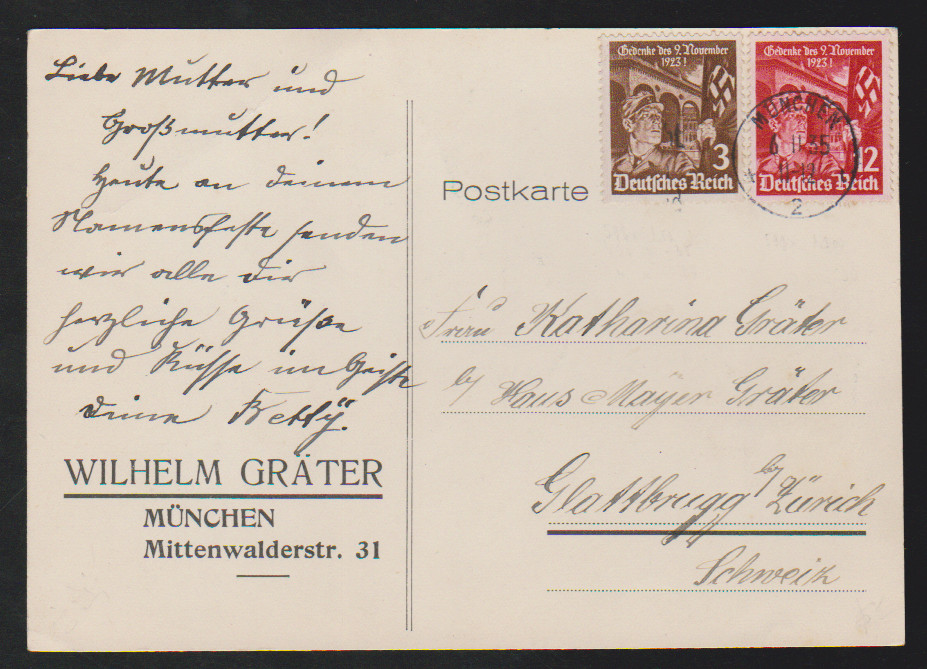 Liebe Mutter und
Großmutter!
Heute an deinem
Namensfeste senden
wir alle dir
herzliche Grüße
und Küsse im Geiste
deine Betty.
WILHELM GRÄTER
MÜNCHEN
Mittenwalderstr. 31
Gedenke des 9. November
1923!
3
Deutsches Reich
Gedenke des 9. November
1923!
12
Deutsches Reich
MÜNCHEN
2
Postkarte
Frau Katharina Gräter
b/ Haus Mayer Gräter
Glattbrugg b/ Zürich
Schweiz